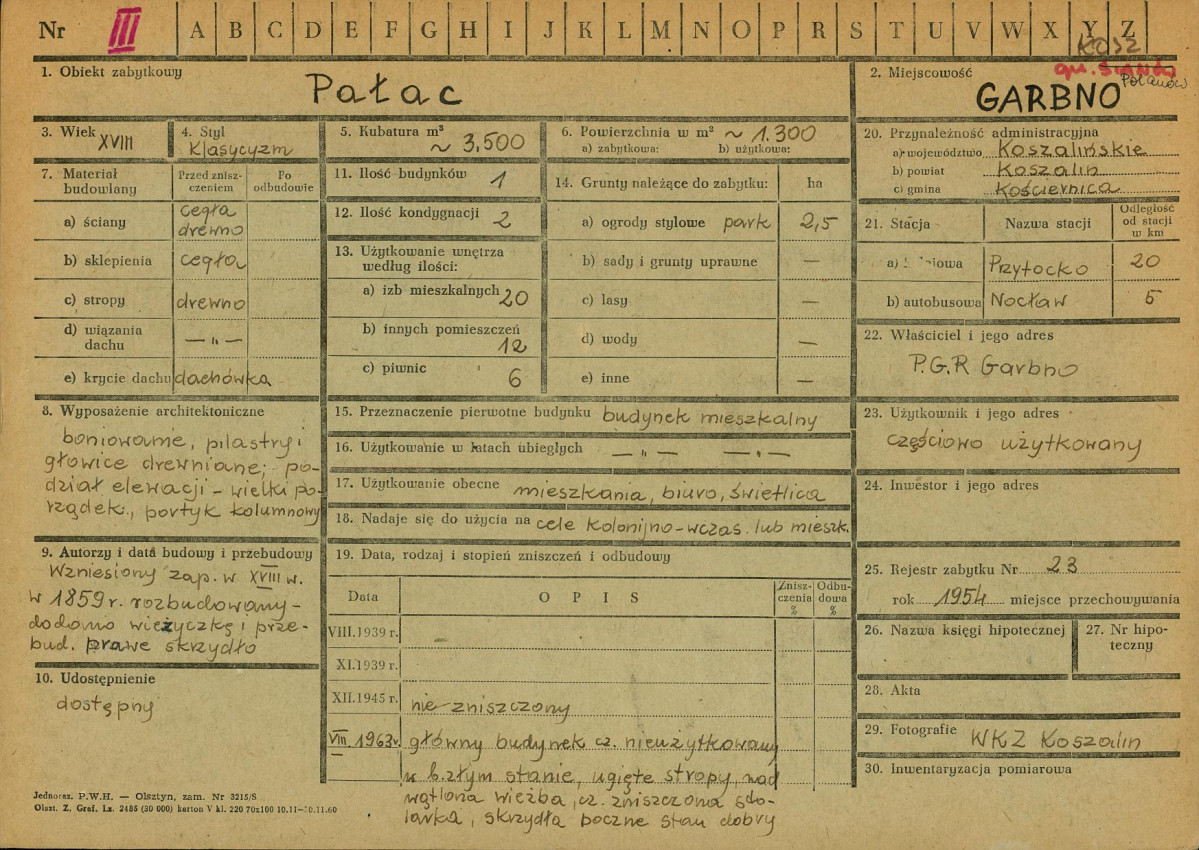 Nr III A B C D E F G H I J K L M N O P R S T U V W X Y Z
KOSZ
gm.
Polanów
1. Obiekt zabytkowy
Pałac
2. Miejscowość
GARBNO
3. Wiek
XVIII
4. Styl
Klasycyzm
5. Kubatura m³
~ 3.500
6. Powierzchnia w m² ~ 1.300
a) zabytkowa: b) użytkowa:
7. Materiał budowlany
Przed zniszczeniem
Po odbudowie
a) ściany
cegła
drewno
b) sklepienia cegła
c) stropy drewno
d) wiązania
dachu — „ —
e) krycie dachu dachówka
8. Wyposażenie architektoniczne
boniowanie, pilastry i
głowice drewniane; po-
dział elewacji – wielki po-
rządek., portyk kolumnowy
9. Autorzy i data budowy i przebudowy
Wzniesiony zap. w XVIII w.
w 1859 r. rozbudowany –
dodano wieżyczkę i prze-
bud. prawe skrzydło
10. Udostępnienie
dostępny
11. Ilość budynków 1
12. Ilość kondygnacji 2
13. Użytkowanie wnętrza
według ilości:
a) izb mieszkalnych 20
b) innych pomieszczeń
12
c) piwnic
6
14. Grunty należące do zabytku: ha
a) ogrody stylowe park 2,5
b) sady i grunty uprawne —
c) lasy —
d) wody —
e) inne —
15. Przeznaczenie pierwotne budynku budynek mieszkalny
16. Użytkowanie w latach ubiegłych — „ — — „ —
17. Użytkowanie obecne mieszkania, biuro, świetlica
18. Nadaje się do użycia na cele kolonijno-wczas. lub mieszk.
19. Data, rodzaj i stopień zniszczeń i odbudowy
Data O P I S Znisz-
czenia
% Odbu-
dowa
%
VIII.1939 r.
XI.1939 r.
XII.1945 r. nie zniszczony
VIII.1963 r. główny budynek cz. nieużytkowany
w b.złym stanie, ugięte stropy, nad
wątlona więźba, cz. zniszczona sto-
larka, skrzydła boczne stan dobry
20. Przynależność administracyjna
a) województwo Koszalińskie
b) powiat Koszalin
c) gmina Kościernica
21. Stacja Nazwa stacji Odległość
od stacji
w km
a) Przytocko 20
b) autobusowa Nocław 5
22. Właściciel i jego adres
P.G.R Garbno
23. Użytkownik i jego adres
częściowo użytkowany
24. Inwestor i jego adres
25. Rejestr zabytku Nr 23
rok 1954 miejsce przechowywania
26. Nazwa księgi hipotecznej
27. Nr hipo-
teczny
28. Akta
29. Fotografie WKZ Koszalin
30. Inwentaryzacja pomiarowa
Jednoraz. P.W.H. — Olsztyn, zam. Nr 3215/S
Olszt. Z. Graf. Lz. 2485 (30 000) karton V kl. 220 70x100 10.11—30.11.60